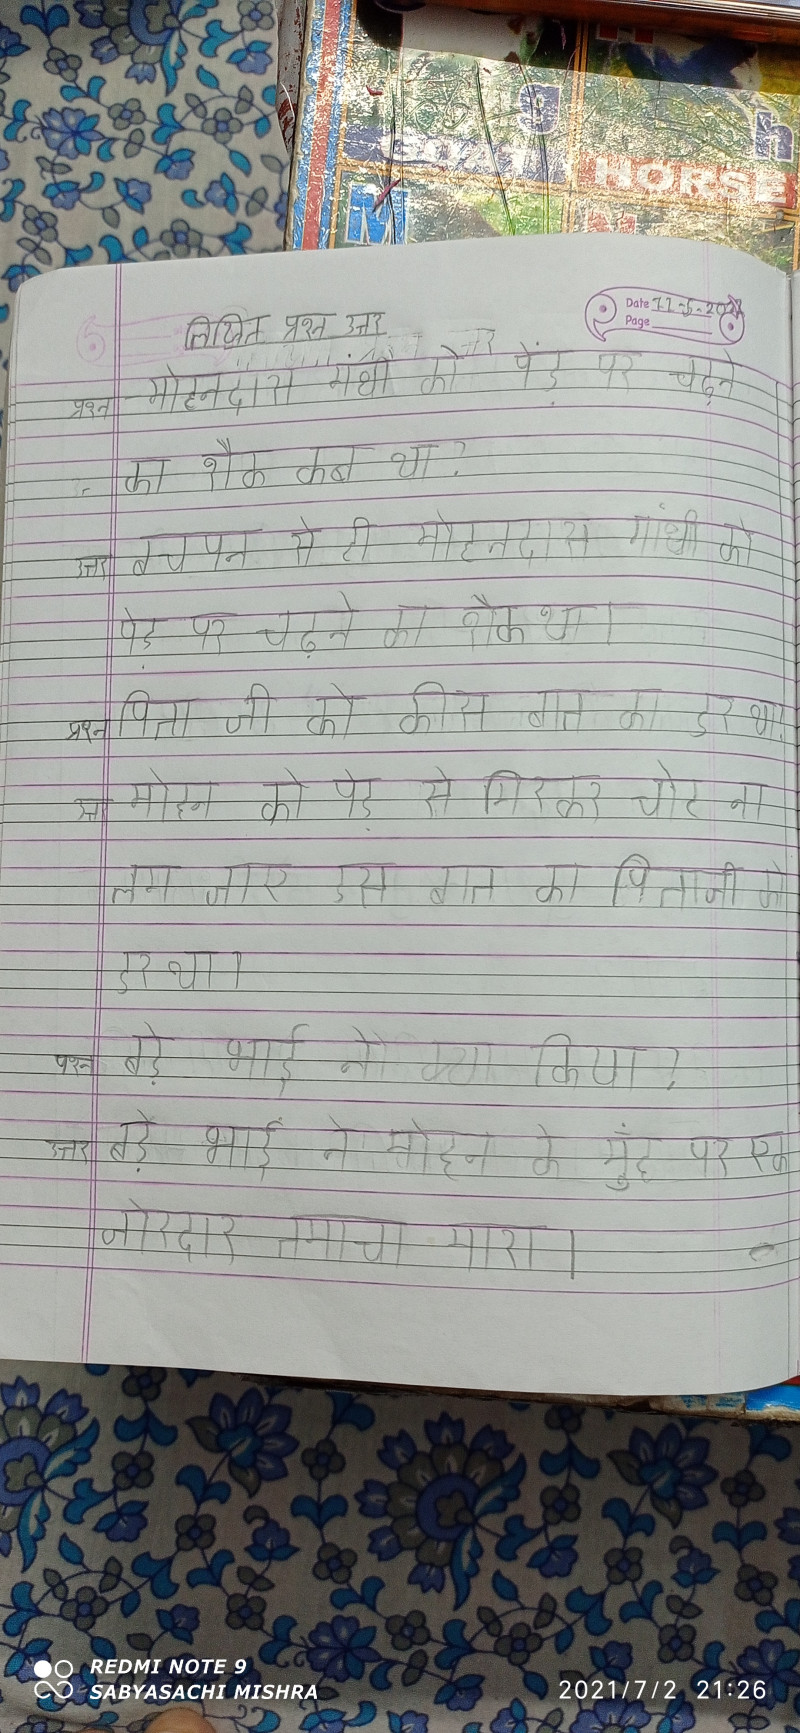 HORSE
h
M
Date 11-5-2021
Page
लिखित प्रश्न उत्तर
प्रश्न मोहनदास गंधी को पेंड़ पर चढ़ने
का शौक कब था?
उत्तर बचपन से ही मोहनदास गांधी को
पेड़ पर चढ़ने का शौक था।
प्रश्न पिता जी को कीस बात का डर था
उत्तर मोहन को पेड़ से गिरकर चोट ना
लग जाए इस बात का पिताजी को
डर था।
प्रश्न बड़े भाई ने क्या किया?
उत्तर बड़े भाई ने मोहन के मुँह पर एक
जोरदार तमाचा मारा।
REDMI NOTE 9
SABYASACHI MISHRA
2021/7/2 21:26